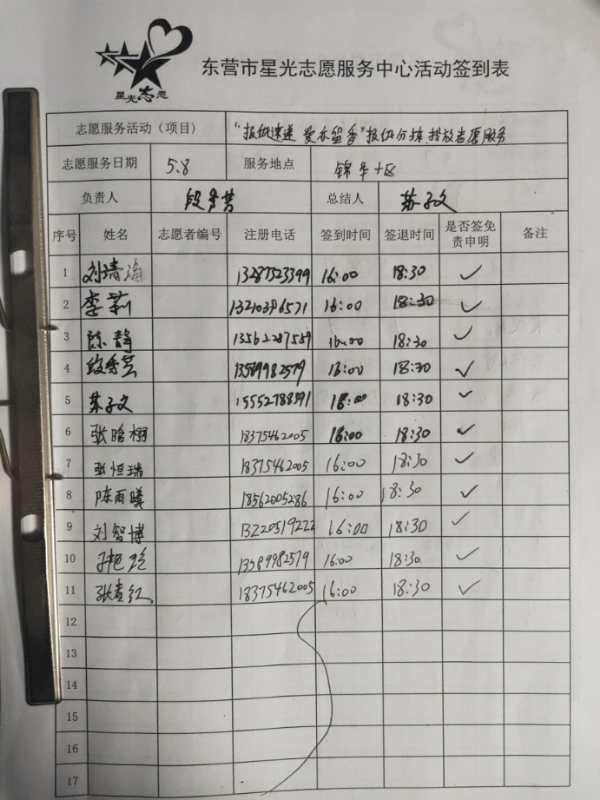 星光志愿
东营市星光志愿服务中心活动签到表
志愿服务活动（项目） "报纸速递 爱在留香"报纸分拣 投放志愿服务
志愿服务日期 5.8 服务地点 锦华十区
负责人 段秀芸 总结人 苏子文
序号 姓名 志愿者编号 注册电话 签到时间 签退时间 是否签免责申明 备注
1 刘清海 13287523399 16:00 18:30 ✓
2 李莉 13210396571 16:00 18:30 ✓
3 陈静 13562287559 16:00 18:30 ✓
4 段秀芸 13589982579 16:00 18:30 ✓
5 苏子文 15552788591 16:00 18:30 ✓
6 张晗栩 18375462005 16:00 18:30 ✓
7 张恒瑞 18375462005 16:00 18:30 ✓
8 陈雨曦 18562005286 16:00 18:30 ✓
9 刘智博 13220519222 16:00 18:30 ✓
10 13589982579 16:00 18:30 ✓
11 张春红 18375462005 16:00 18:30 ✓
12
13
14
15
16
17